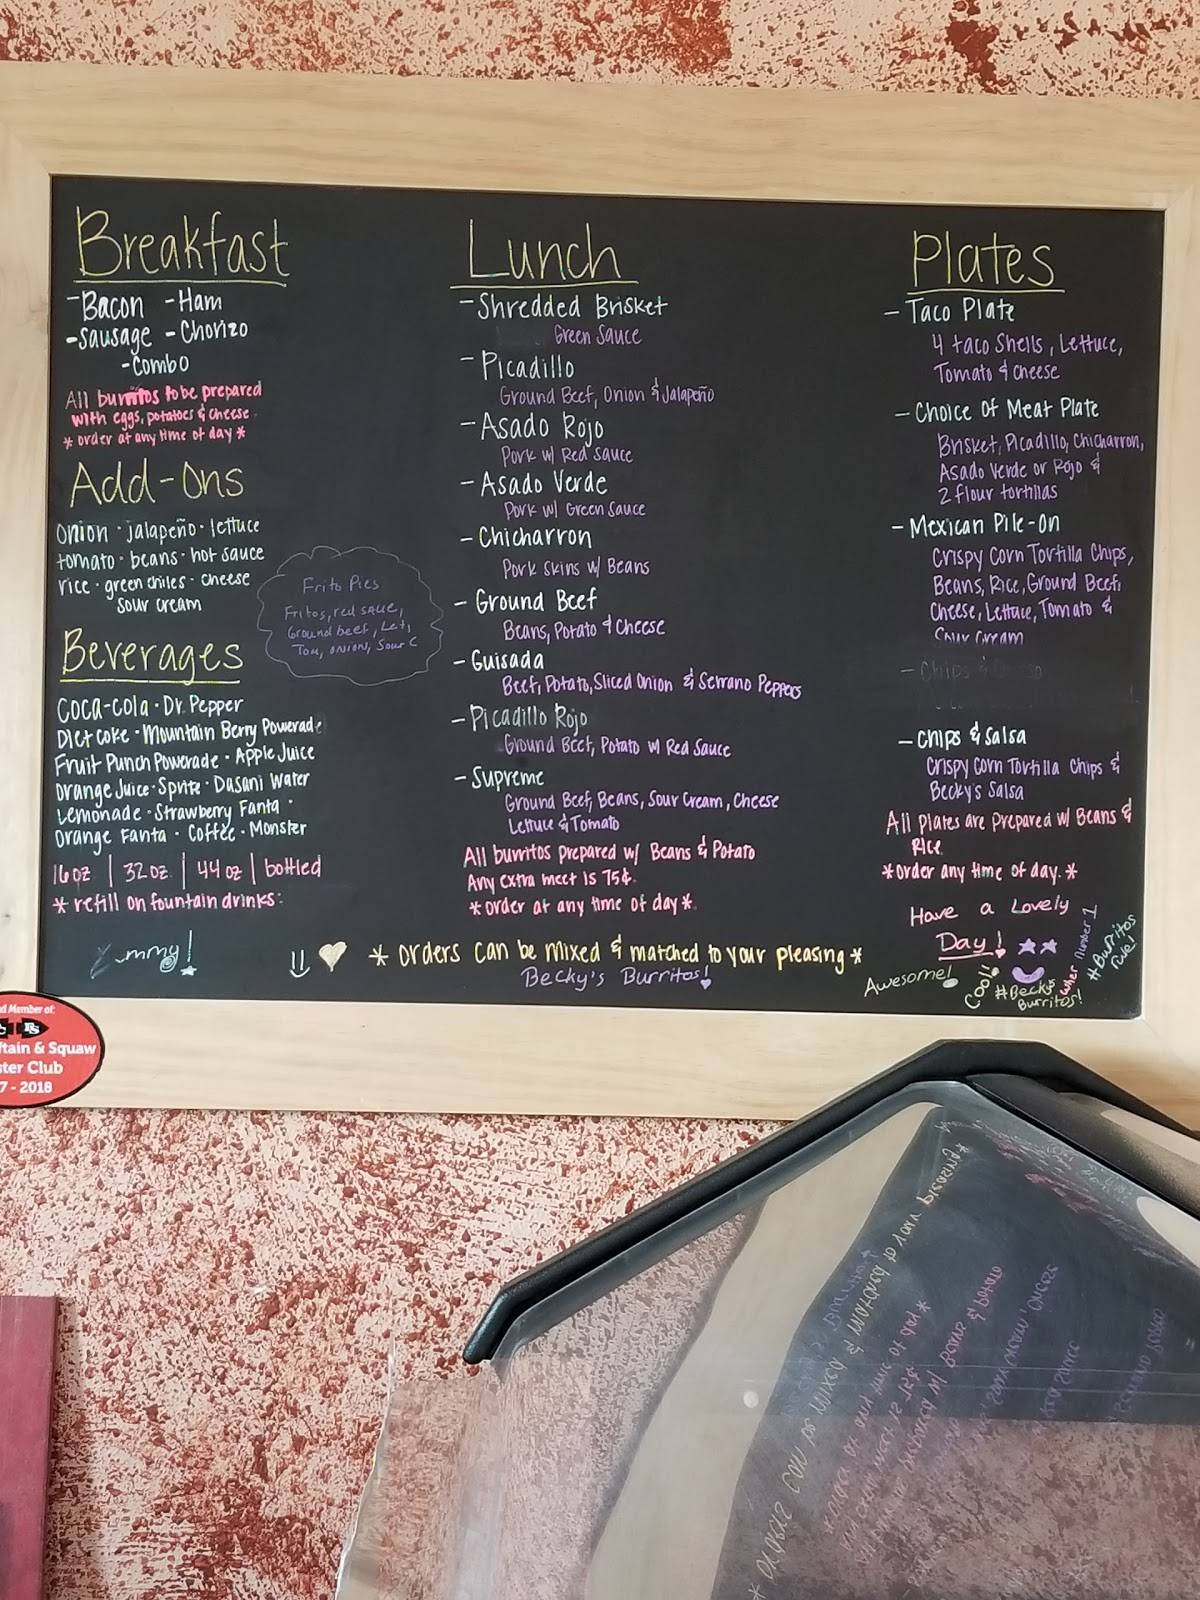 Breakfast
-Bacon -Ham
-Sausage -Chorizo
-Combo
All burritos to be prepared
with eggs, potatoes & cheese.
* order at any time of day *
Add-Ons
onion · jalapeño · lettuce
tomato · beans · hot sauce
rice · green chiles · cheese
sour cream
Frito Pies
Fritos, red sauce,
Ground beef, Let,
Tom, onion, Sour C
Beverages
Coca-cola · Dr. Pepper
Diet Coke · Mountain Berry Powerade
Fruit Punch Powerade · Apple Juice
Orange Juice · Sprite · Dasani Water
Lemonade · Strawberry Fanta ·
Orange Fanta · Coffee · Monster
16oz | 32oz | 44oz | bottled
* refill on fountain drinks:
Yummy!
Lunch
-Shredded Brisket
Green Sauce
-Picadillo
Ground Beef, Onion & Jalapeño
-Asado Rojo
Pork w/ Red Sauce
-Asado Verde
Pork w/ Green Sauce
-Chicharron
Pork Skins w/ Beans
-Ground Beef
Beans, Potato & Cheese
-Guisada
Beef, Potato, Sliced Onion & Serrano Peppers
-Picadillo Rojo
Ground Beef, Potato w/ Red Sauce
-Supreme
Ground Beef, Beans, Sour Cream, Cheese
Lettuce & Tomato
All burritos prepared w/ Beans & Potato
Any extra meet is 75¢.
* order at any time of day *
* orders can be mixed & matched to your pleasing *
Becky's Burritos!
Plates
-Taco Plate
4 taco shells, Lettuce,
Tomato & Cheese
-Choice of Meat Plate
Brisket, Picadillo, Chicharron,
Asado Verde or Rojo &
2 flour tortillas
-Mexican Pile-on
Crispy Corn Tortilla Chips,
Beans, Rice, Ground Beef,
Cheese, Lettuce, Tomato &
Sour Cream
-Chips & Salsa
Crispy Corn Tortilla Chips &
Becky's Salsa
All plates are prepared w/ Beans &
Rice.
*order any time of day. *
Have a Lovely
Day!
Awesome!
Cool!
#Becky's
Burritos!
number 1
#Burritos
rule!
d Member of:
tain & Squaw
ster Club
7 - 2018